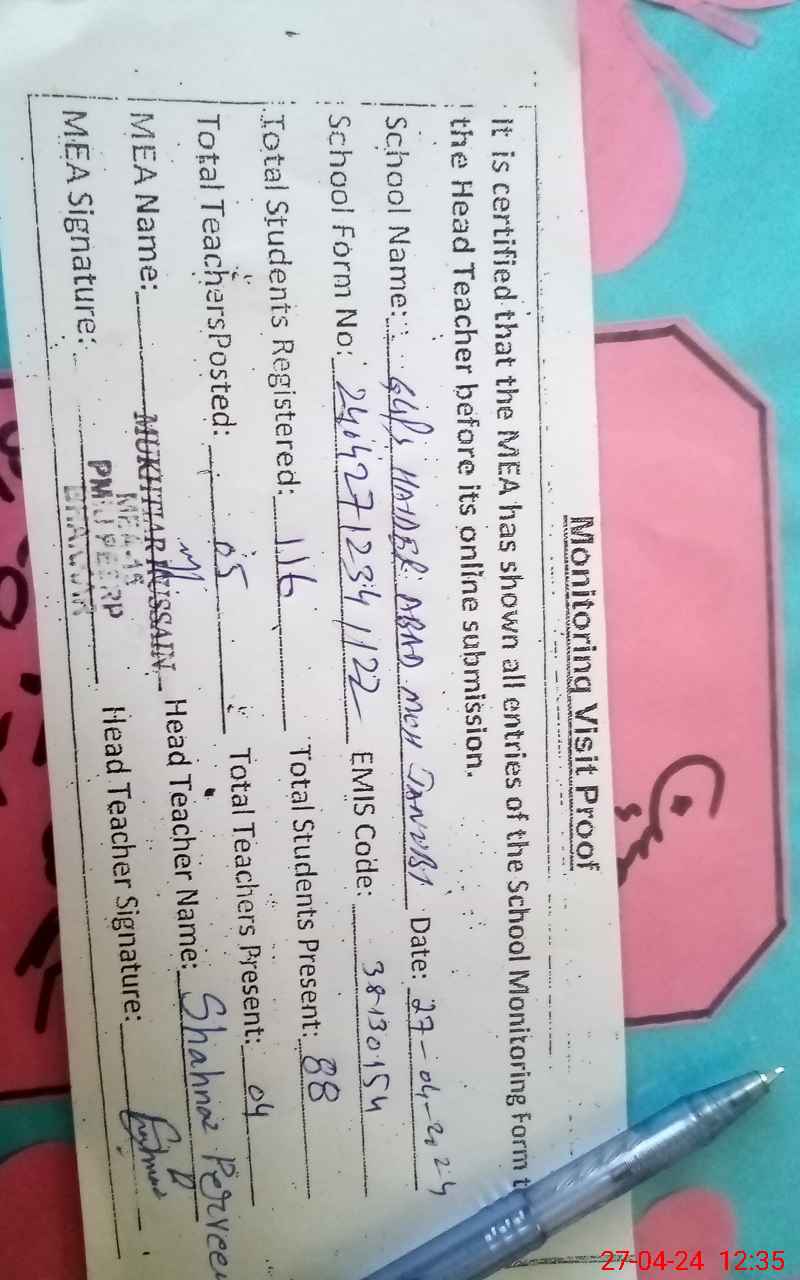 Monitoring Visit Proof
It is certified that the MEA has shown all entries of the School Monitoring Form t
the Head Teacher before its online submission.
School Name: GGPS HAIDER ABAD MCH JANUBI Date: 27-04-2024
School Form No: 2404271234/122 EMIS Code: 38130154
Total Students Registered: 116 Total Students Present: 88
Total Teachers Posted: 05 Total Teachers Present: 04
MEA Name: MUKHTIAR HUSSAIN Head Teacher Name: Shahnaz Perveen
MEA Signature: Head Teacher Signature:
MEA-15
BHAKKAR
27-04-24 12:35